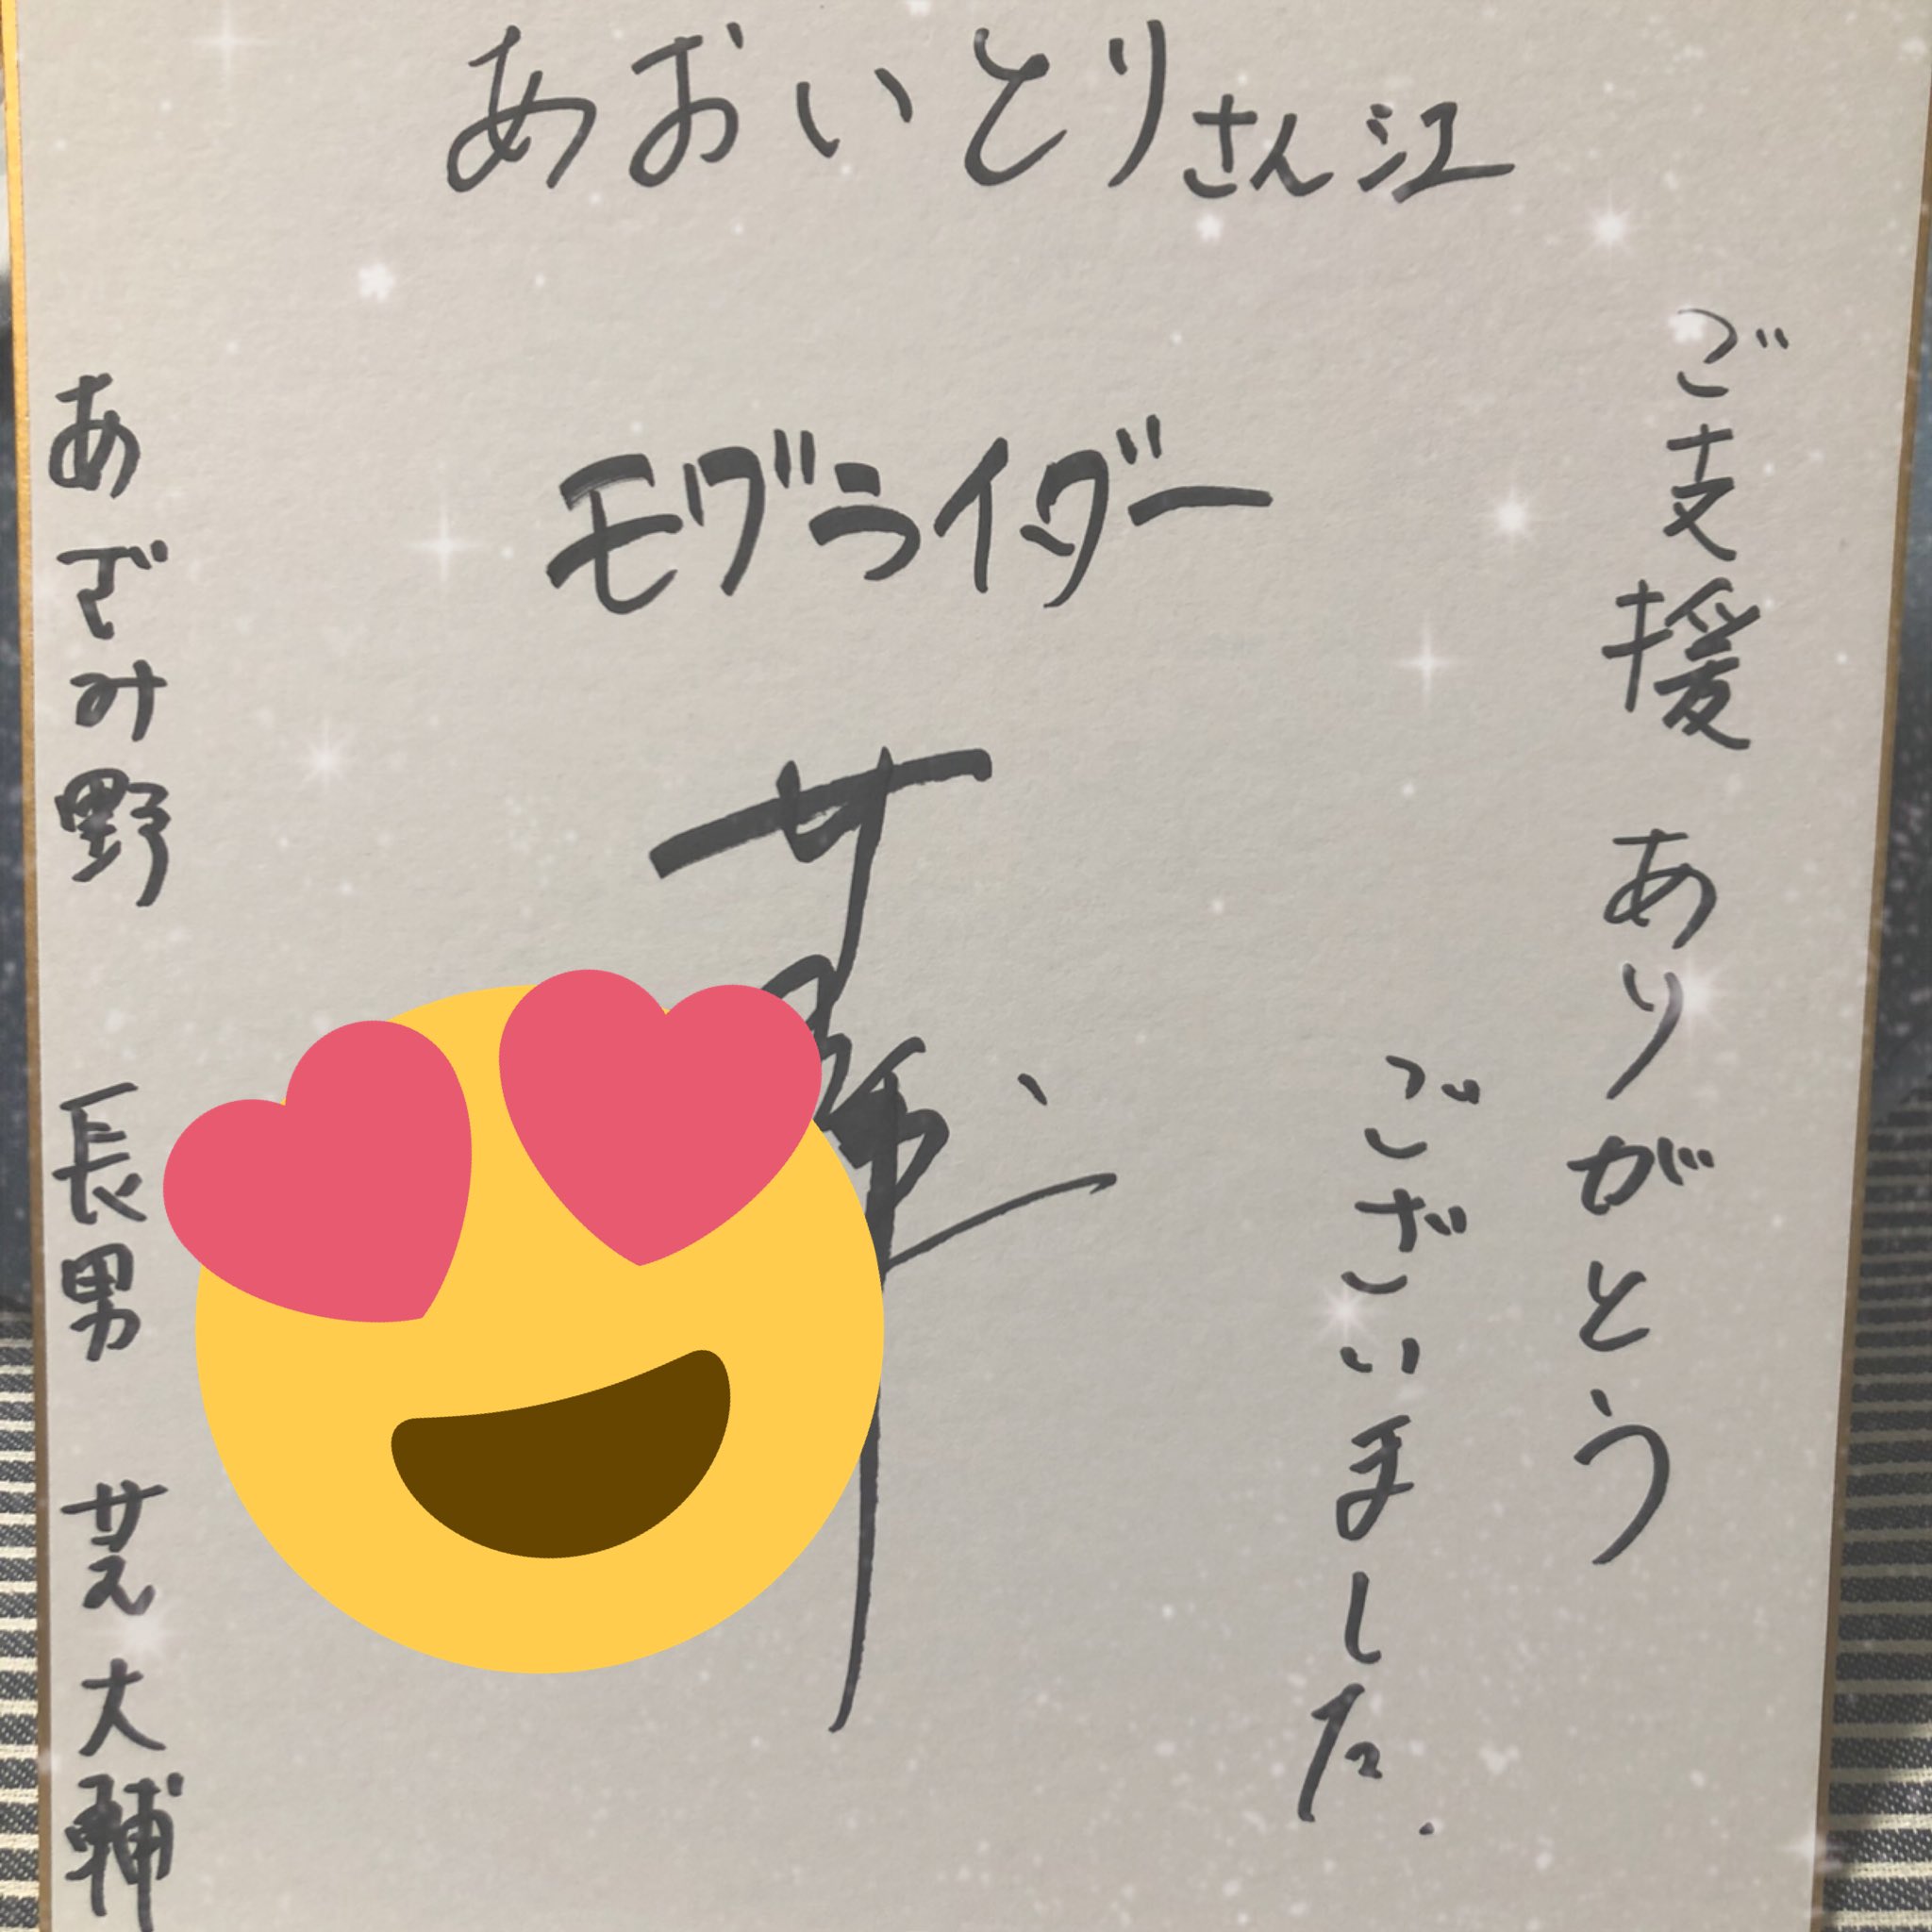 あおいとりさん江
ご支援 ありがとう
ございました.
モグライダー
あざみ野 長男 芝 大輔